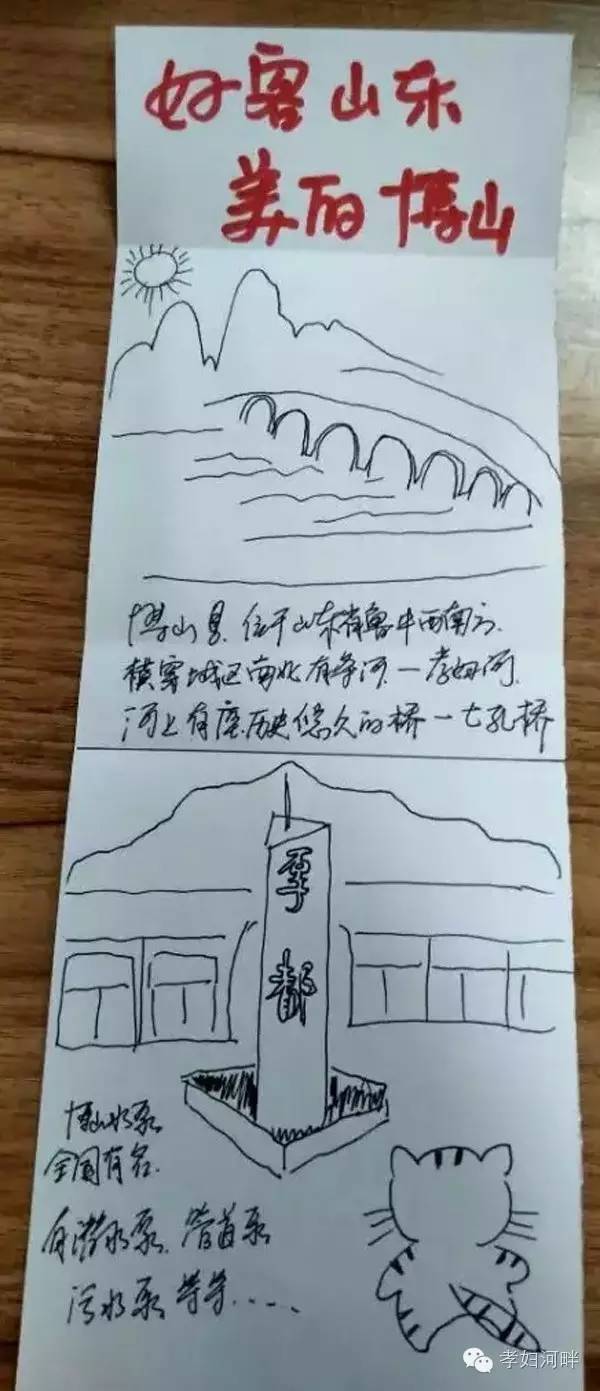 好客山东
美丽博山
博山县.位于山东省鲁中西南方.
横穿城区南北有条河.一孝妇河.
河上有座历史悠久的桥一七孔桥
都
博山水泵
全国有名.
有潜水泵.管道泵
污水泵等等.....
孝妇河畔